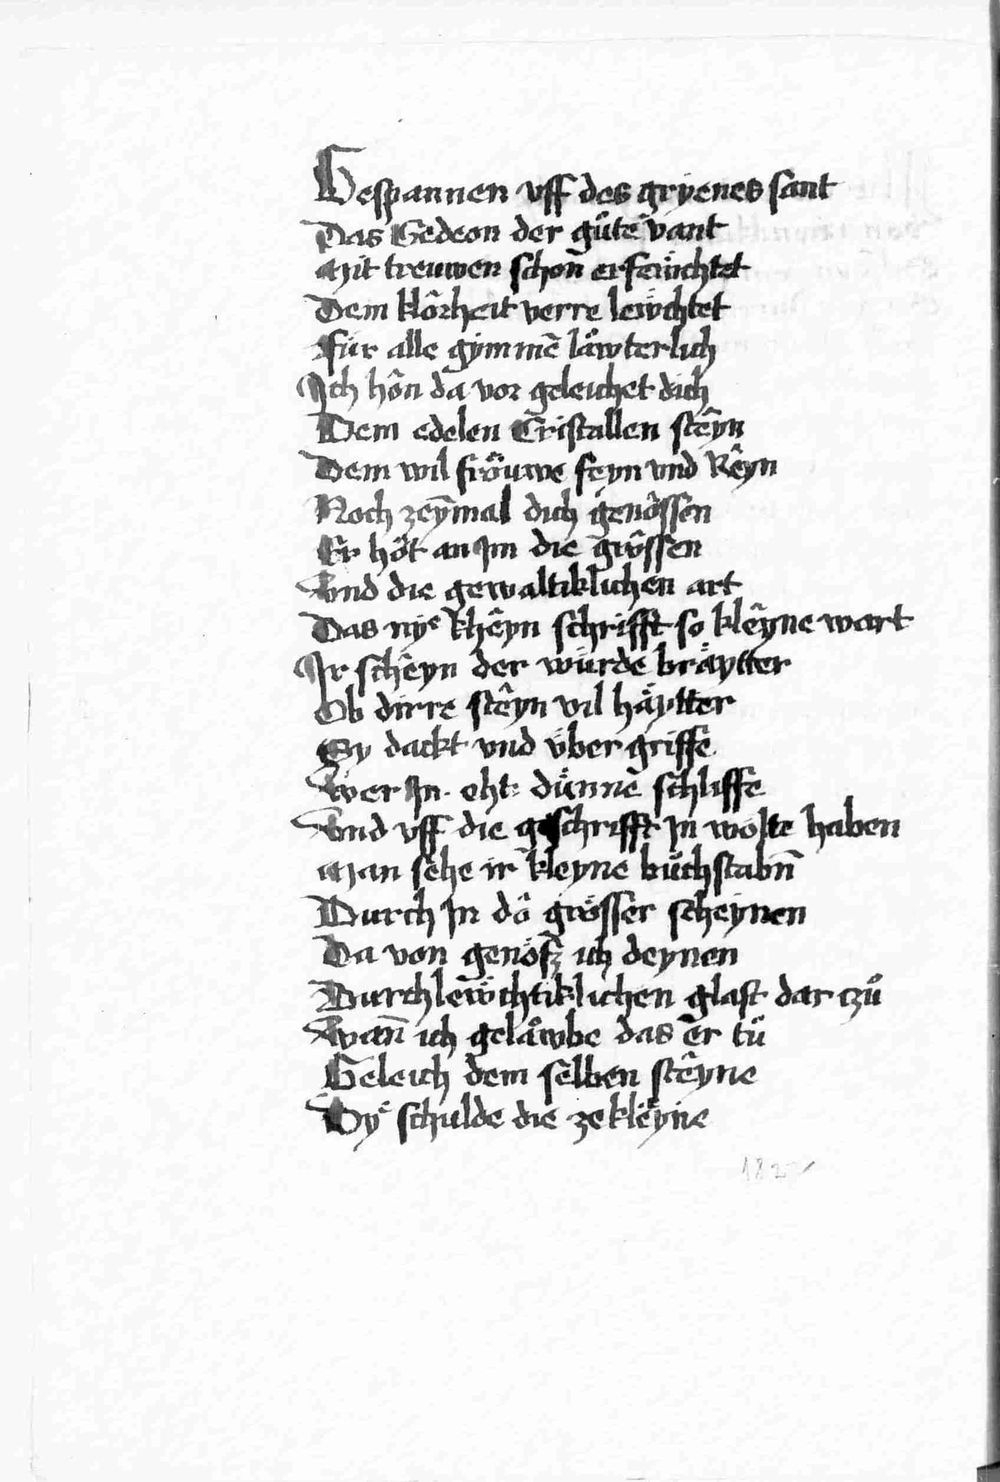 Gespannen vff des gryenes sant
Das Gedeon der gůte vant
Mit treuwen schon̄ erfeẅchtet
Dem klôrheit verre leẅchtet
Für alle gymmē låwterlich
Ich hôn da vor geleichet dich
Dem edelen Cristallen stêyn
Dem wil frŏuwe feyn vnd Rêyn
Noch zeȳmal dich genôssen
Er hôt an Im die grôssen
Vnd die gewaltiklichen art
Das nyͤ khêyn schrifft so klêyne wart
Ir schêyn der würde bräytter
Ob dirre stêyn vil häytter
Sy dackt vnd über griffe
Wer In eht dünnē schliffe
Vnd vff die geschrifft In wolte haben
Man sehe ir kleyne bůchstabn̄
Durch In dô grösser scheynen
Da von genôsz ich deynen
Durchleẅchtiklichen glast dar zů
Wan̄ ich gelåwbe das er tů
Geleich dem selben stêyne
Dyͤ schulde die ze klëyne